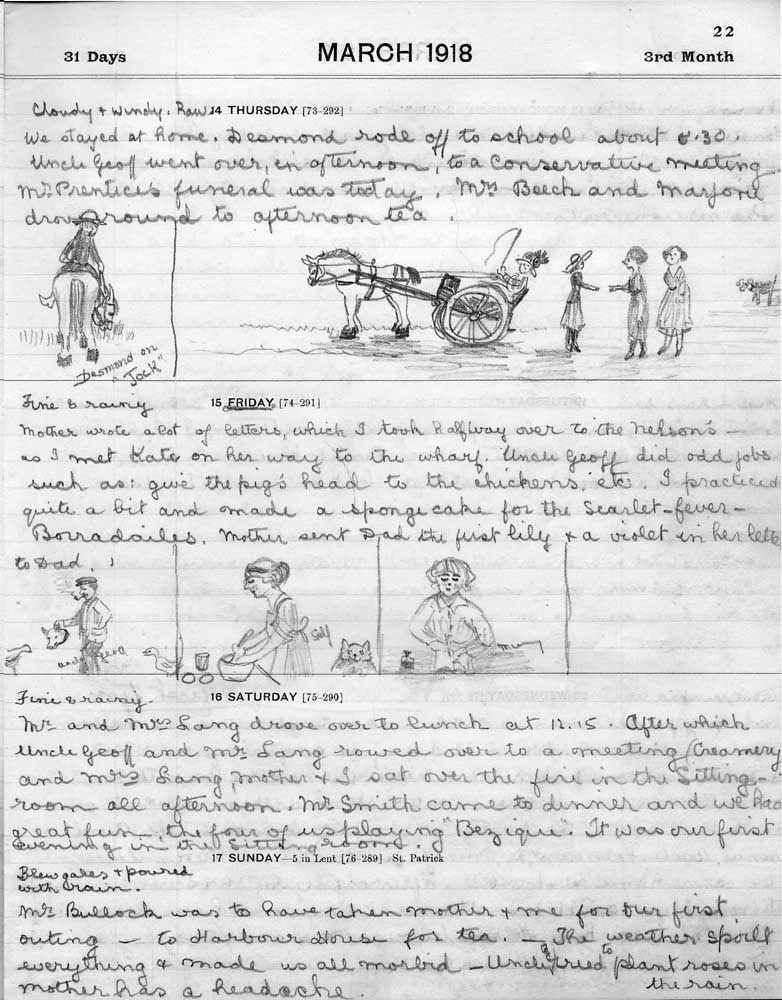 22
31 Days MARCH 1918 3rd Month
Cloudy & windy. Raw. 14 THURSDAY [73-292]
We stayed at home. Desmond rode off to school about 8.30.
Uncle Geoff went over, in afternoon, to a Conservative meeting.
Mr. Prentice's funeral was today. Mrs Beech and Marjorie
drove round to afternoon tea.
Desmond on
"Jock"
Fine & rainy 15 FRIDAY [74-291]
Mother wrote a lot of letters, which I took halfway over to the Nelson's —
as I met Kate on her way to the wharf. Uncle Geoff did odd jobs
such as: give the pig's head to the chickens, etc. I practiced
quite a bit and made a sponge cake for the Scarlet-fever-
Borradailes. Mother sent Dad the first lily & a violet in her letter
to Dad. !
uncle geoff
Self
mum
Fine & rainy. 16 SATURDAY [75-290]
Mr. and Mrs Lang drove over to lunch at 12.15. After which
Uncle Geoff and Mr. Lang rowed over to a meeting (Creamery
and Mrs Lang, Mother & I sat over the fire in the Sitting-
room all afternoon. Mr. Smith came to dinner and we had
great fun — the four of us playing "Bezique". It was our first
evening in the Sitting room.
17 SUNDAY—5 in Lent [76-289] St. Patrick
Blew gales & poured
with rain.
Mr. Bullock was to have taken mother & me for our first
outing — to Harbour House for tea. — The weather spoilt
everything & made us all morbid — Uncle G tried to plant roses in
mother has a headache. the rain.